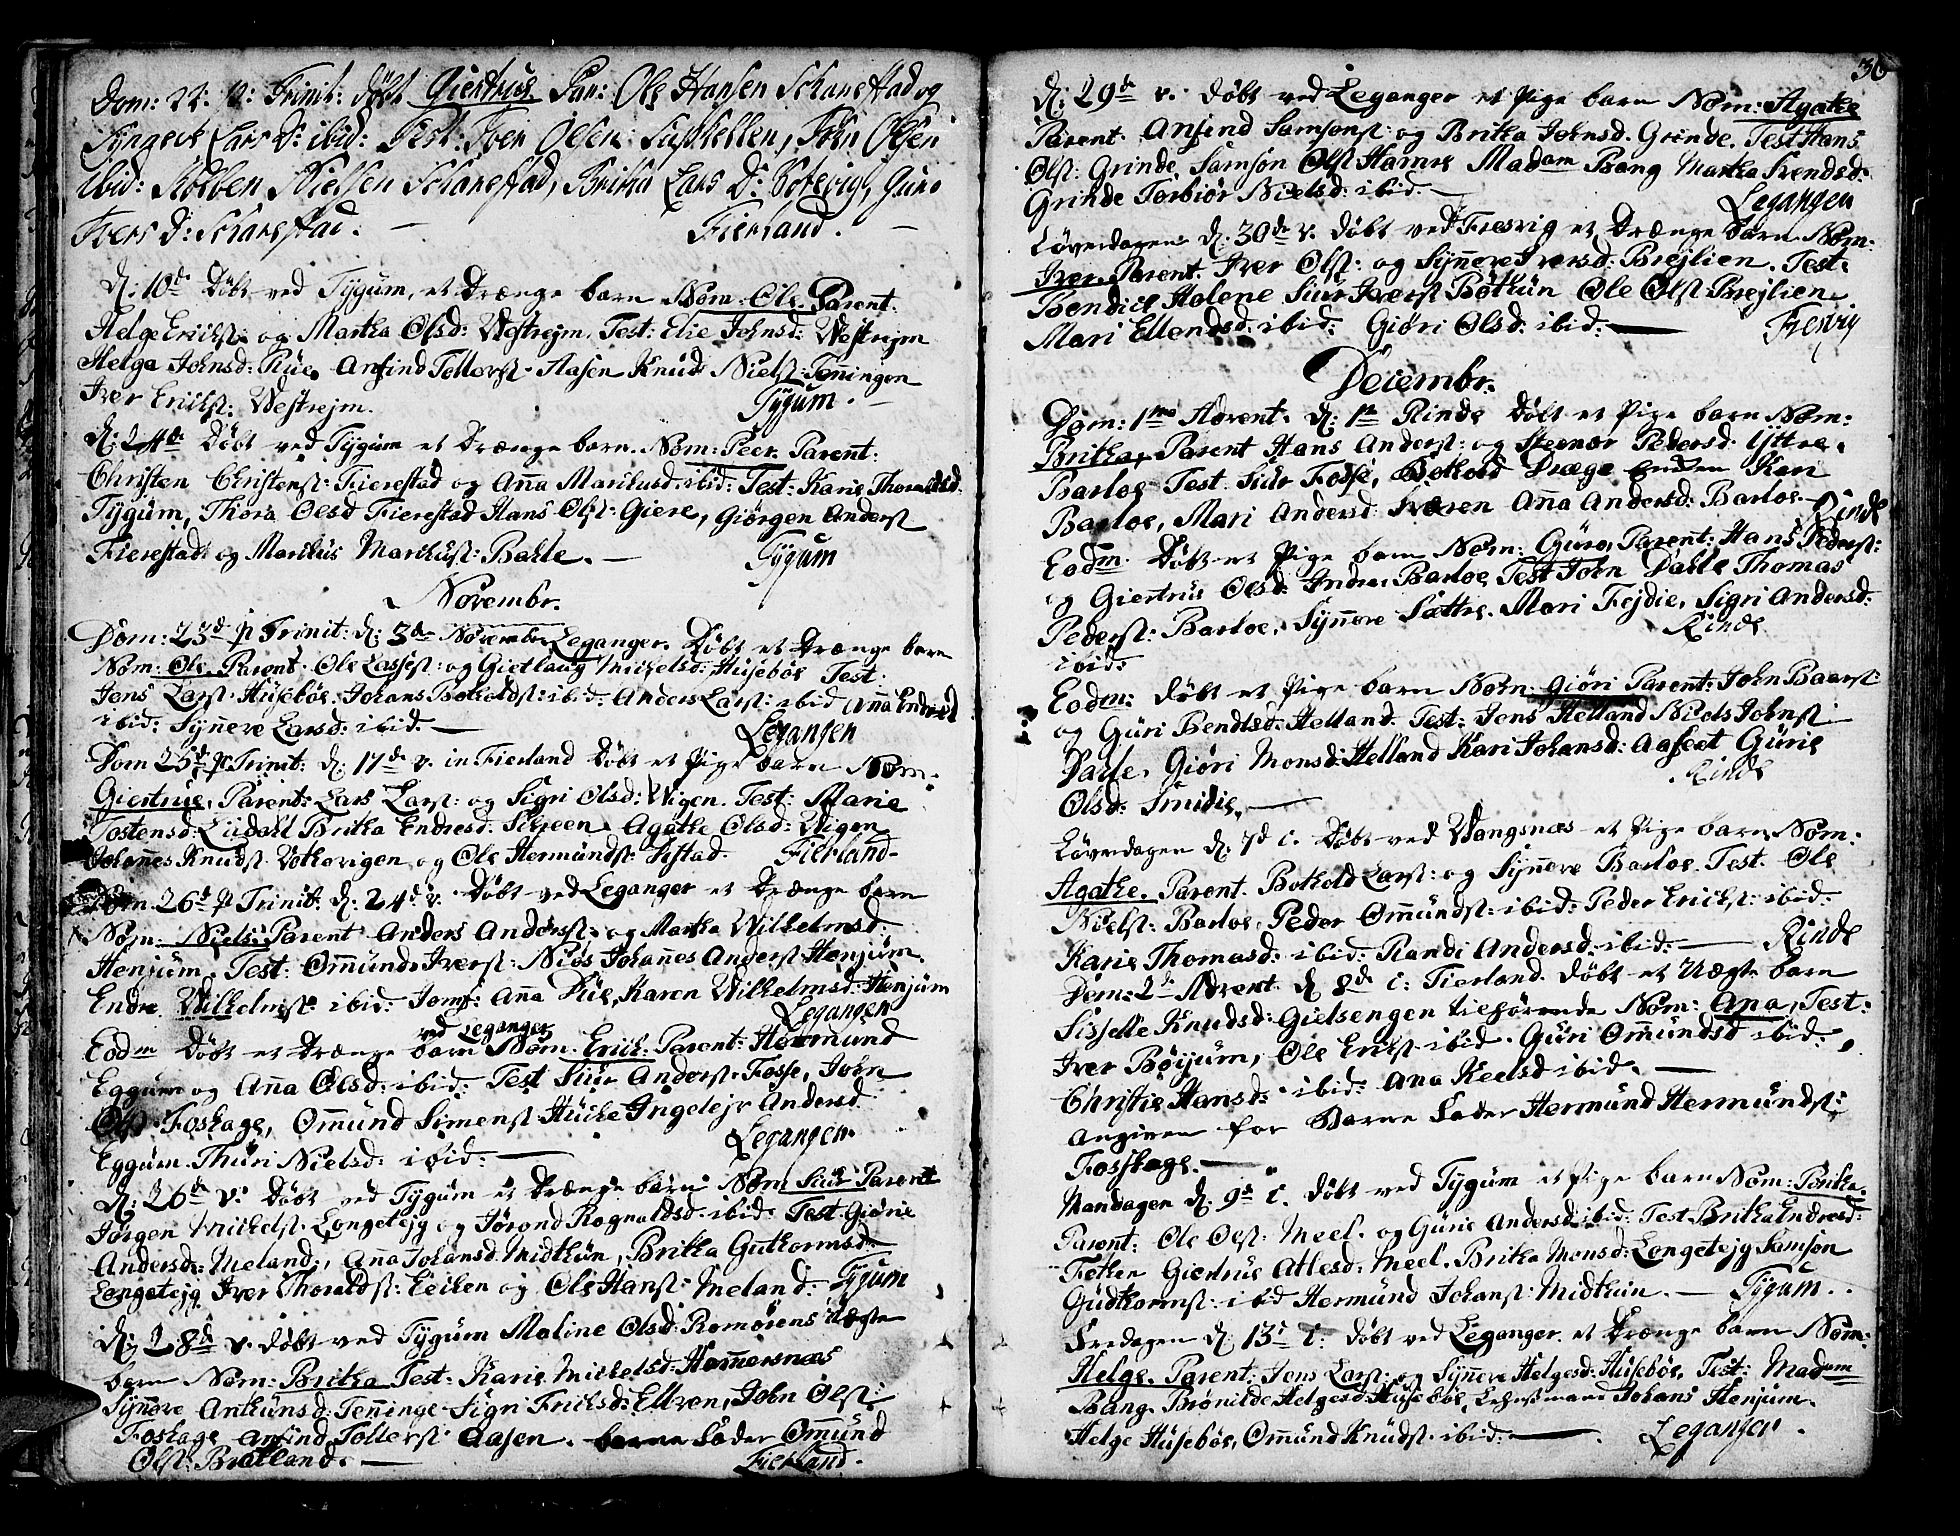 Dom: 22: p: Trinit: döbt Giertrue Par: Ole Hansen Scharestad og
Lars D: ibid: Test: Iver Olsen Suphellen, John Olsen
ibid: Kolben Nielsen Scharestad, Britha Lars D: Botevig, Guro
Ivers D: Scharestad. — Fierland. —
D: 10de Döbt ved Tÿgum, et Drænge barn Nom: Ole. Parent.
Helge Erichs: og Martha Olsd: Westrejm. Test: Elie Johnsd: Westrejm
Helga Johnsd: Rüe. Anfind Tollevs: Aasen Knud Niels: Tenningen
Iver Erichs: Westrejm. Tÿgum. —
D: 24de Döbt ved Tÿgum et Drænge barn. Nom: Peer. Parent:
Christen Christens: Fierestad og Anna Marcusd: ibid: Test: Karie Thoraldsd.
Tÿgum, Thora Olsd Fierestad Hans Ols: Giere, Giörgen Anders
Fierestad og Marcus Marchus: Bahle. — Tÿgum
Novembr.
Dom: 23d p Trinit: d: 3de Novembr Leganger. Döbt et Drænge barn
Nom: Ole. Parent. Ole Lasses: og Gietlaug Michelsd: Husebÿe Test.
Jens Lars: Husebÿe. Johans Botholds: ibid: Anders Lars: ibid Anna Endresd
ibid: Sÿnnere Larsd: ibid: — Leganger
Dom 25d p Trinit: D: 17de v. in Fierland Döbt et Pige barn Nom:
Giertrue, Parent: Lars Lars: og Sigri Olsd: Wigen. Test: Marie
Tostensd: Britha Endresd. Agathe Olsd: Wigen
Johannes Knuds: og Ole Hermunds: Fierland.
Dom. 26d p Trinit: d: 24d v. Döbt ved Leganger et Drænge barn
Nom: Niels: Parent Anders Anders: og Martha Wilhelmsd:
Henjum. Test: Ommund Ivers: Niøs Johannes Anders Henjum.
Endre Wilhelms: ibid: Jomf: Anna Rüe, Karen Wilhelmsd: Henjum
Leganger
ved Leganger
Eodm Döbt et Drænge barn Nom: Erich. Parent: Hermund
Eggum og Anna Olsd: ibid: Test Siur Anders: Fosse, John
Ols Foshage, Ommund Simens Hücke Ingelejv Andersd
Eggum. Thuri Nielsd: ibid: — Leganger.
D: 26de v. Döbt ved Tÿgum et Drænge barn Nom Siur Parent
Jörgen Michels. Longetejg og Jörond Rognaldsd: ibid: Test Giörie
Andersd: Meland, Anna Johansd Midthün, Britha Guthormsd
Longetejg Iver Thoralds: Leiken og Ole Hans: Meland: Tÿgum
D: 28d v. döbt ved Tÿgum Maline Olsd: Romørens Uægte
barn Nom: Britha Test: Karie Michelsd: Hammersnæs
Sÿnnere Ankunsd: Tenninge Sigri Erichsd: Eltzen, John Ols:
Foshage Anfind Tollevs: Aasen. barne fader Ommund
Ols: Bratland. — Fierland.
36
D: 29de v. döbt ved Leganger et Pige barn Nom: Agathe
Parent. Anfind Samsons: og Britha Johnsd. Grinde. Test Hans
Ols: Grinde, Samson Ols Hamre Madam Bang Martha Svendsd:
Grinde Torbiör Nielsd: ibid: — Leganger
Löverdagen D: 30de v. döbt ved Fresvig et Drænge barn Nom:
Iver. Parent. Iver Ols: og Sÿnnere Iversd: Brejlien. Test.
Bendict Holene Siur Ivers Böthün Ole Ols Brejlien
Mari Ellendsd: ibid: Giöri Olsd: ibid: — Fresvig
Decembr.
Dom: 1mo Advent: D: 1te Rinde Döbt et Pige barn Nom:
Britha, Parent Hans Anders: og Steenor Pedersd: Ÿttre.
Barloe Test. Siür Fosse, Bothold Dræge Kari
Barloe, Mari Andersd Anna Andersd: Barloe. — Rinde
Eodm. Döbt et Pige barn Nom: Guro, Parent: Hans Peders:
og Giertrüe Olsd: Indre Barloe Test John Dahle Thomas
Peders: Barloe. Sÿnnere Sættre. Mari Fejdie, Sigri Andersd:
ibid: Rinde
Eodm: döbt et Pige barn Nom: Giöri Parent: John Baars:
og Guri Bendtsd: Helland. Test: Jens Helland Niels Johns
Dahle. Giöri Monsd: Helland Kari Johansd: Aafeet Gürie
Olsd: Smidie. — Rinde
Löverdagen D: 7d i. Döbt ved Wangsnæs et Pige barn Nom:
Agathe. Parent. Bothold Lars: og Sÿnnere Barloe. Test. Ole
Niels: Barloe, Peder Ommunds: ibid: Peder Erichs: ibid:
Karie Thomasd: ibid: Randi Andersd: ibid: — Rinde
Dom: 2de Advent. D 8de i: Fierland. döbt et Uægte barn
Sisselle Knudsd: Gielsengen tilhörende Nom: Ana, Test:
Iver Böyjum, Ole Erichs ibid. Guri Ommundsd ibid:
Christie Hansd: ibid: Ana Keelsd ibid. —
Angiven for Barne Fader Hermünd Hermünds:
Foshage. —
Mandagen D: 9de i. döbt ved Tÿgum et Pige barn Nom: Britha.
Parent: Ole Ols: Meel. og Gürie Andersd: ibid: Test Britha Endresd:
Giertrue Atlesd: Meel. Britha Monsd: Longetejg Samson
Güdthorms: ibid Hermünd Johans: Midthün. — Tÿgum..
Fredagen D: 13d i. döbt ved Leganger et Drænge barn Nom:
Helge. Parent: Jens Lars: og Sÿnnere Helgesd: Husebÿe, Test: Madam
Bang. Brönilde Helgesd: Husebÿe, Lehnsmand Johans Henjum.
Helge Husebÿe, Ommund Knuds: ibid: — Leganger.